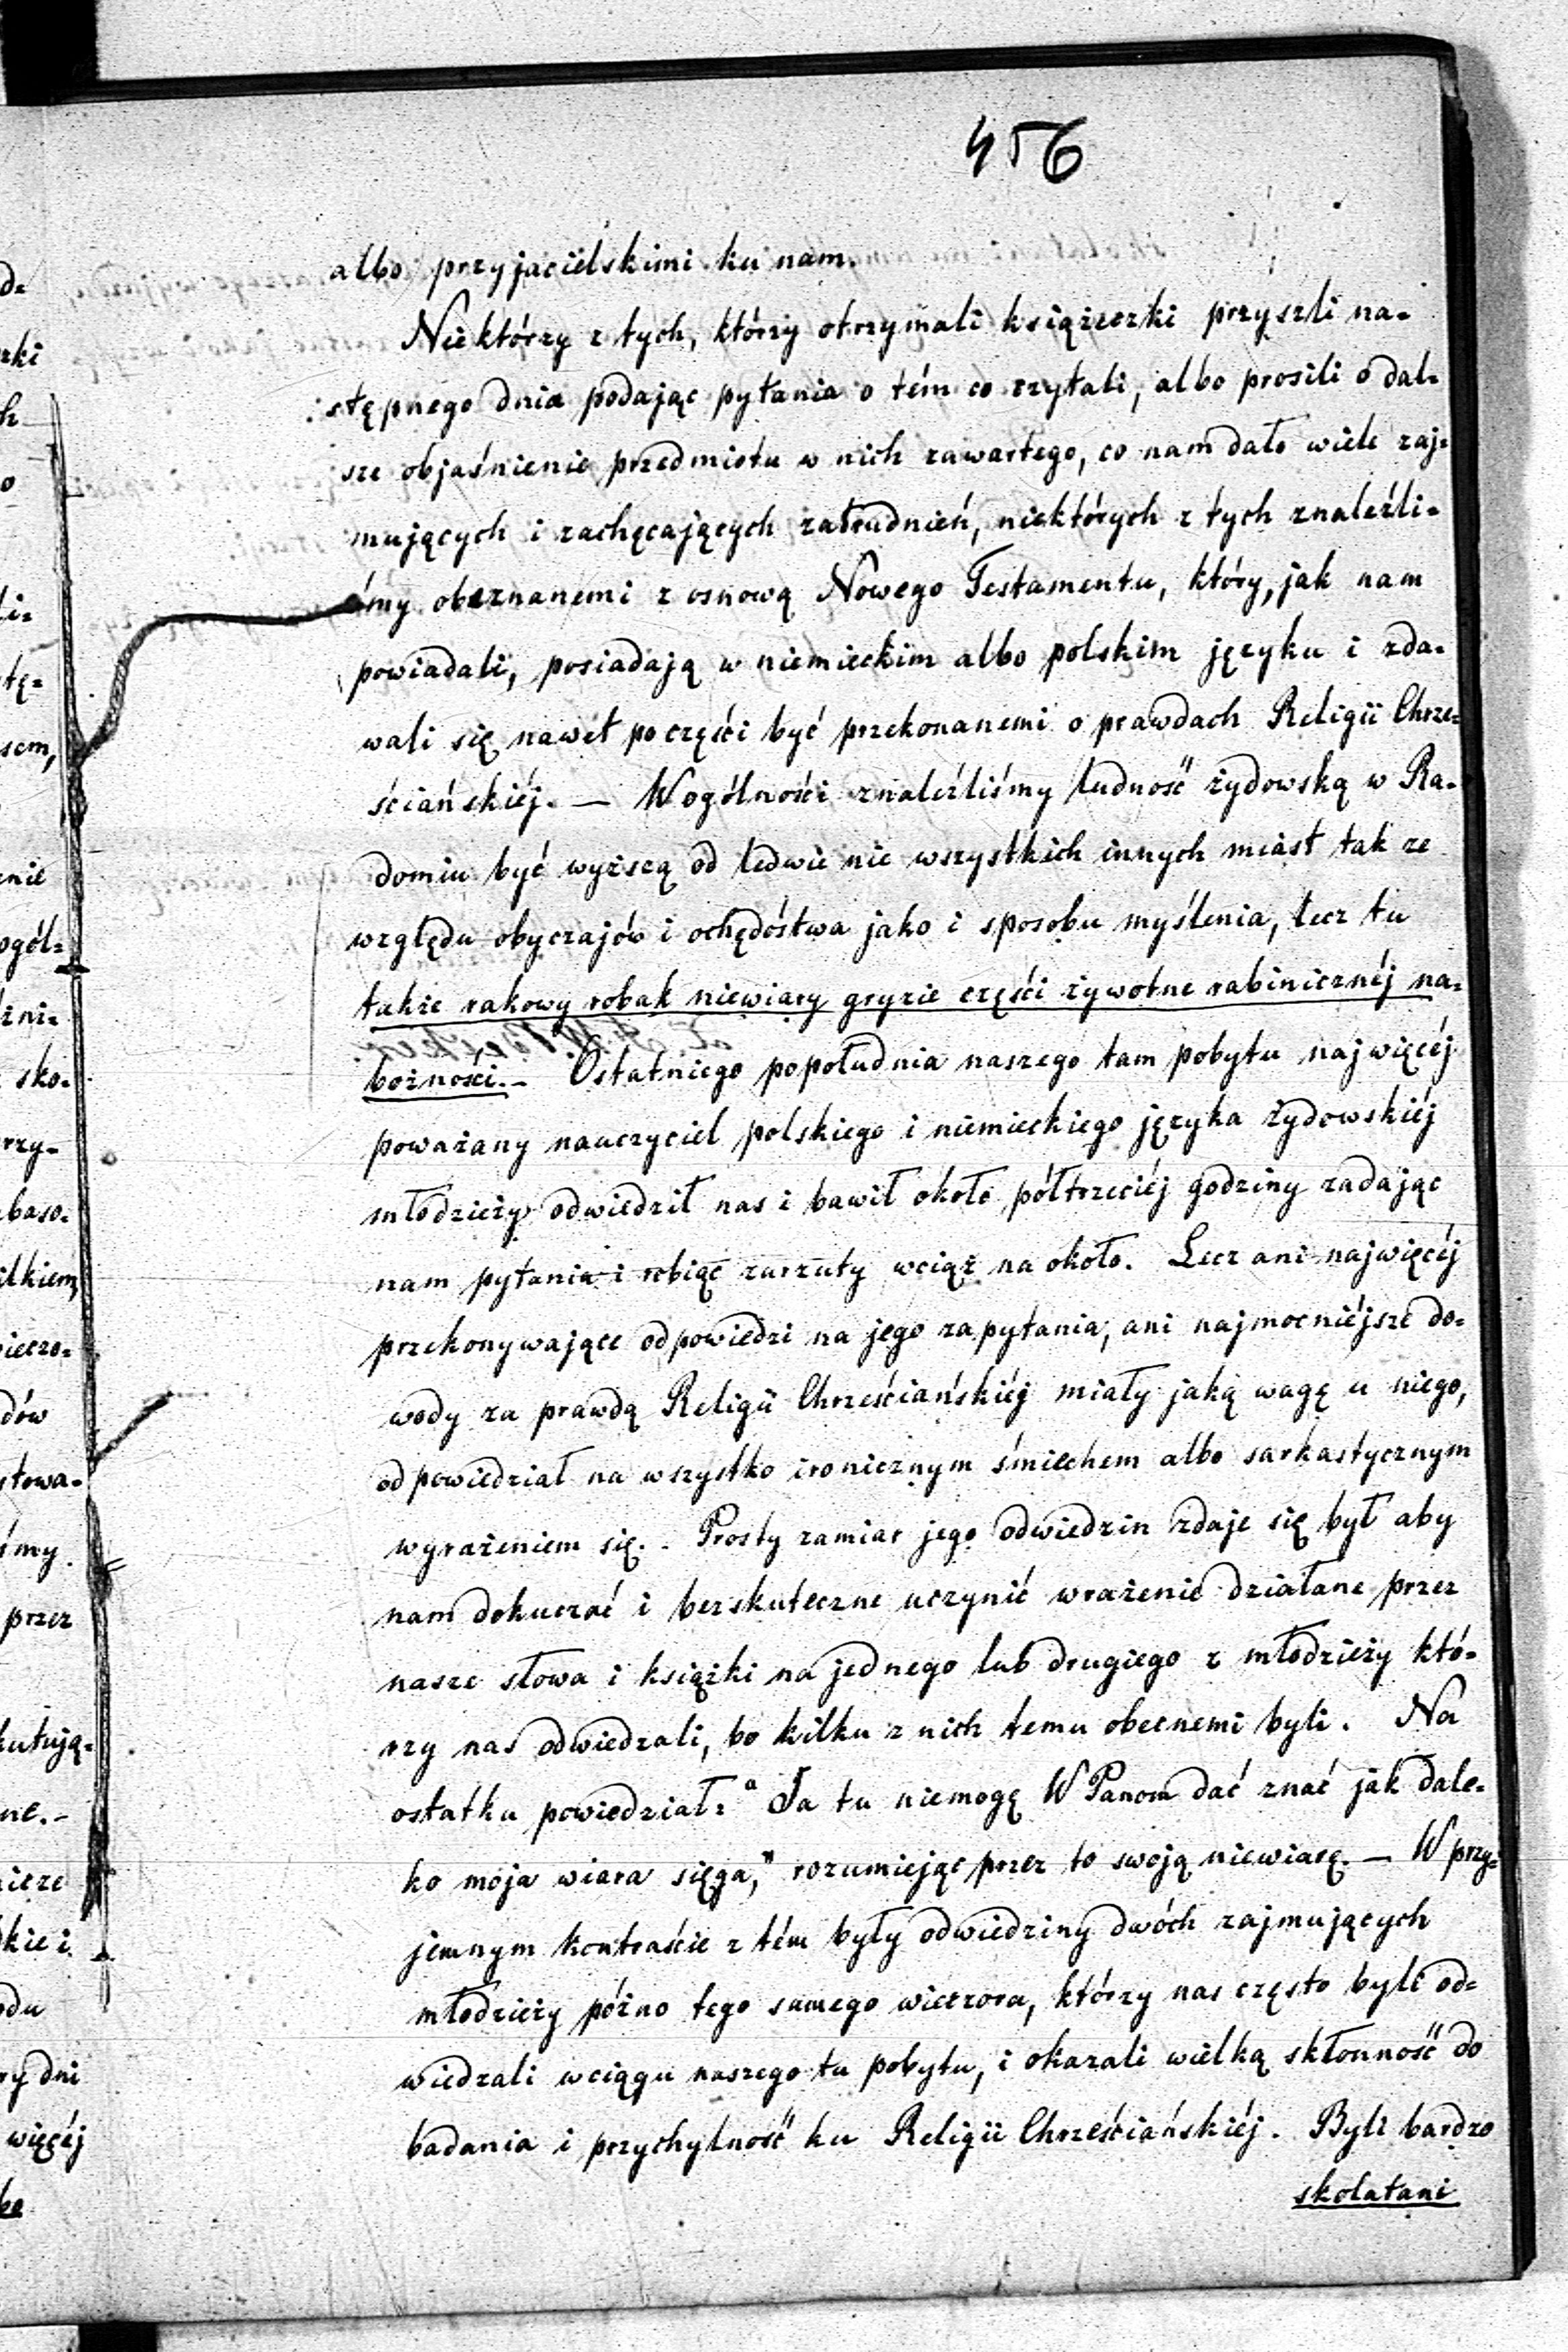 456
albo przyjacielskimi ku nam.
Niektórzy z tych, którzy otrzymali książeczki przyszli na-
stępnego dnia podając pytania o tém co czytali, albo prosili o dal-
sze objaśnienie przedmiotu w nich zawartego, co nam dało wiele zaj-
mujących i zachęcających zatrudnień, niektórych z tych znaleźli-
śmy obeznanemi z osnową Nowego Testamentu, który, jak nam
powiadali, posiadają w niemieckim albo polskim języku i zda-
wali się nawet po części być przekonanemi o prawdach Religii Chrze-
ściańskiéj. — W ogólności znaleźliśmy ludność żydowską w Ra-
domiu być wyższą od ledwie nie wszystkich innych miast tak ze
względu obyczajów i ochędóstwa jako i sposobu myślenia, lecz tu
także rakowy robak niewiary gryzie części żywotne rabinicznéj na-
bożności. – Ostatniego popołudnia naszego tam pobytu najwięcéj
poważany nauczyciel polskiego i niemieckiego języka żydowskiéj
młodzieży odwiedził nas i bawił około półtrzeciéj godziny zadając
nam pytania i robiąc zarzuty wciąż na około. Lecz ani najwięcéj
przekonywające odpowiedzi na jego zapytania, ani najmocniéjsze do-
wody za prawdą Religii Chrześciańskiéj miały jaką wagę u niego,
odpowiedział na wszystko ironicznym śmiechem albo sarkastycznym
wyrażeniem się. Prosty zamiar jego odwiedzin zdaje się był aby
nam dokuczać i bezskuteczne uczynić wrażenie działane przez
nasze słowa i książki na jednego lub drugiego z młodzieży któ-
rzy nas odwiedzali, bo kilku z nich temu obecnemi byli. Na
ostatku powiedział: "Ja tu niemogę W Panom dać znać jak dale-
ko moja wiara sięga," rozumiejąc przez to swoją niewiarę. — W przy-
jemnym kontraście z tém były odwiedziny dwóch zajmujących
młodzieży późno tego samego wieczora, którzy nas często byli od-
wiedzali w ciągu naszego tu pobytu, i okazali wielką skłonność do
badania i przychylność ku Religii Chrześciańskiéj. Byli bardzo
skolatani